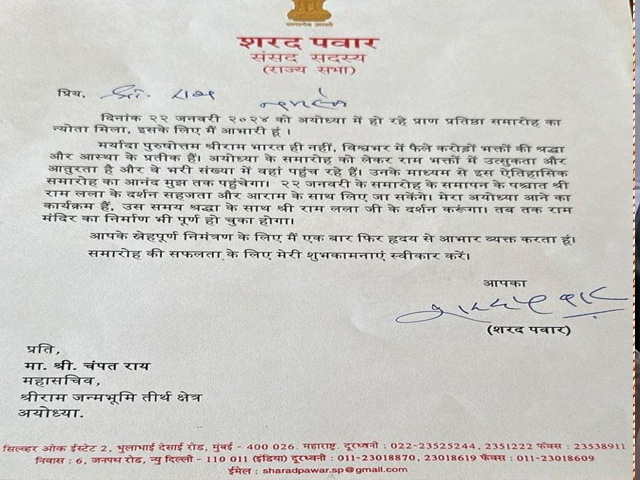 शरद पवार
संसद सदस्य
(राज्य सभा)
प्रिय, श्री. राय
नमस्ते
दिनांक २२ जनवरी २०२४ को अयोध्या में हो रहे प्राण प्रतिष्ठा समारोह का
न्योता मिला, इसके लिए मैं आभारी हूं ।
मर्यादा पुरुषोत्तम श्रीराम भारत ही नहीं, विश्वभर में फैले करोड़ों भक्तों की श्रद्धा
और आस्था के प्रतीक हैं। अयोध्या के समारोह को लेकर राम भक्तों में उत्सुकता और
आतुरता है और वे भरी संख्या में वहां पहुंच रहे हैं। उनके माध्यम से इस ऐतिहासिक
समारोह का आनंद मुझ तक पहुंचेगा। २२ जनवरी के समारोह के समापन के पश्चात श्री
राम लला के दर्शन सहजता और आराम के साथ लिए जा सकेंगे। मेरा अयोध्या आने का
कार्यक्रम हैं, उस समय श्रद्धा के साथ श्री राम लला जी के दर्शन करूंगा। तब तक राम
मंदिर का निर्माण भी पूर्ण हो चुका होगा।
आपके स्नेहपूर्ण निमंत्रण के लिए मैं एक बार फिर हृदय से आभार व्यक्त करता हूं।
समारोह की सफलता के लिए मेरी शुभकामनाएं स्वीकार करें।
आपका
शरद पवार
(शरद पवार)
प्रति,
मा. श्री. चंपत राय
महासचिव,
श्रीराम जन्मभूमि तीर्थ क्षेत्र
अयोध्या.
सिल्व्हर ओक ईस्टेट 2, भुलाभाई देसाई रोड, मुंबई - 400 026. महाराष्ट्र. दूरध्वनी : 022-23525244, 2351222 फॅक्स : 23538911
निवास : 6, जनपथ रोड, न्यु दिल्ली - 110 011 (इंडिया) दूरध्वनी : 011-23018870, 23018619 फॅक्स : 011-23018609
ईमेल : sharadpawar.sp@gmail.com